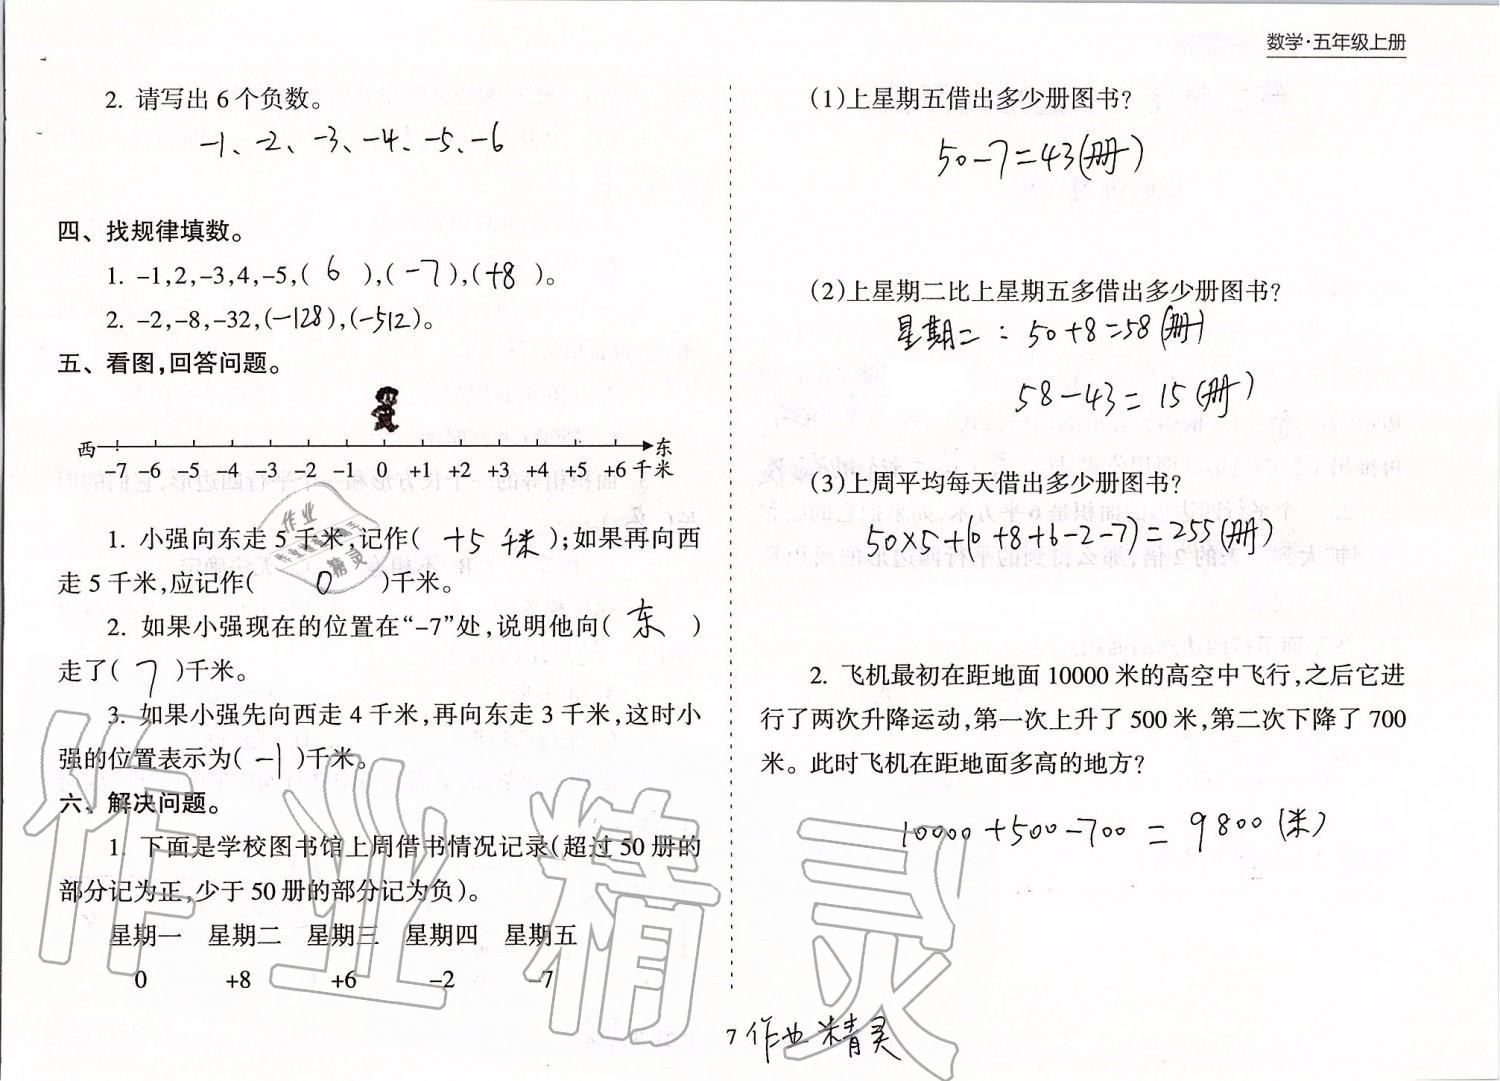 数学·五年级上册
2. 请写出6个负数。
-1、-2、-3、-4、-5、-6
四、找规律填数。
1. -1,2,-3,4,-5,( 6 ),( -7 ),( +8 )。
2. -2,-8,-32,(-128),(-512)。
五、看图,回答问题。
西 东
-7 -6 -5 -4 -3 -2 -1 0 +1 +2 +3 +4 +5 +6 千米
1. 小强向东走5千米,记作( +5千米 );如果再向西
走5千米,应记作( 0 )千米。
2. 如果小强现在的位置在“-7”处,说明他向( 东 )
走了( 7 )千米。
3. 如果小强先向西走4千米,再向东走3千米,这时小
强的位置表示为( -1 )千米。
六、解决问题。
1. 下面是学校图书馆上周借书情况记录(超过50册的
部分记为正,少于50册的部分记为负)。
星期一 星期二 星期三 星期四 星期五
0 +8 +6 -2 -7
(1)上星期五借出多少册图书?
50-7=43(册)
(2)上星期二比上星期五多借出多少册图书?
星期二:50+8=58(册)
58-43=15(册)
(3)上周平均每天借出多少册图书?
50×5+(0+8+6-2-7)=255(册)
2. 飞机最初在距地面10000米的高空中飞行,之后它进
行了两次升降运动,第一次上升了500米,第二次下降了700
米。此时飞机在距地面多高的地方?
10000+500-700=9800(米)
7 作业精灵
作业精灵